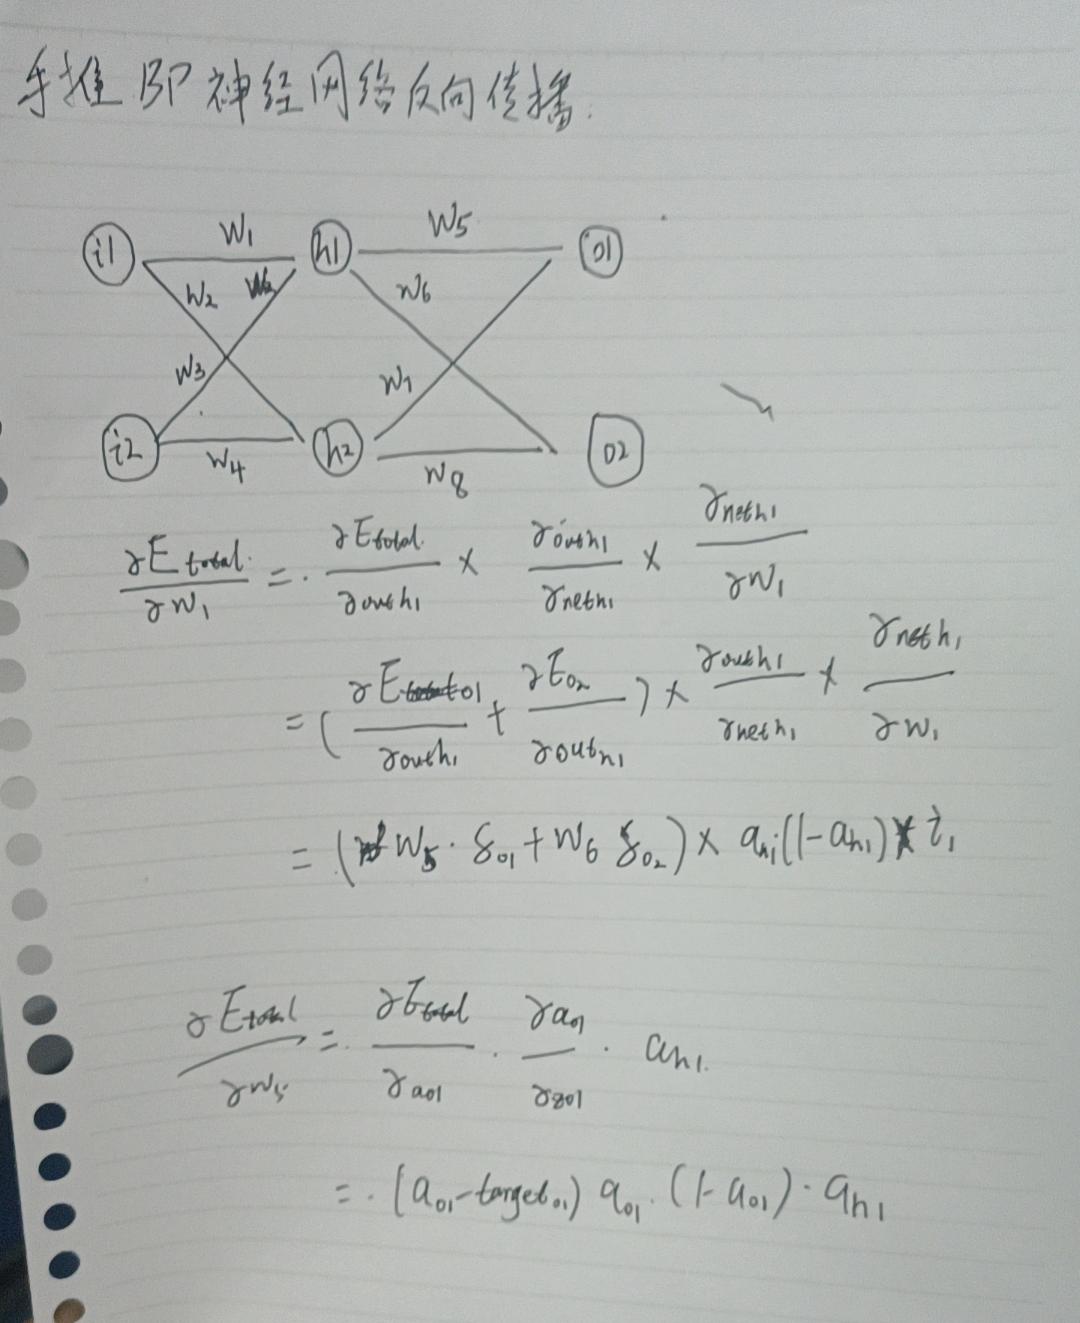 手推 BP 神经网络反向传播.
i1 W1 h1 W5 o1
W2 W6
W3 W7
i2 W4 h2 W8 o2
∂E total / ∂W1 = ∂E total / ∂out h1 × ∂out h1 / ∂net h1 × ∂net h1 / ∂W1
= ( ∂E o1 / ∂out h1 + ∂E o2 / ∂out h1 ) × ∂out h1 / ∂net h1 × ∂net h1 / ∂W1
= ( W5 · δo1 + W6 δo2 ) × ah1 (1 - ah1) × i1
∂E total / ∂W5 = ∂E total / ∂ao1 · ∂ao1 / ∂zo1 · ah1.
= (ao1 - target o1) ao1 · (1 - ao1) · ah1